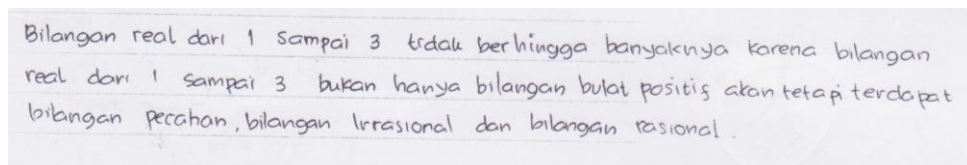 Bilangan real dari 1 sampai 3 tidak berhingga banyaknya karena bilangan
real dari 1 sampai 3 bukan hanya bilangan bulat positif akan tetapi terdapat
bilangan pecahan, bilangan Irrasional dan bilangan rasional.